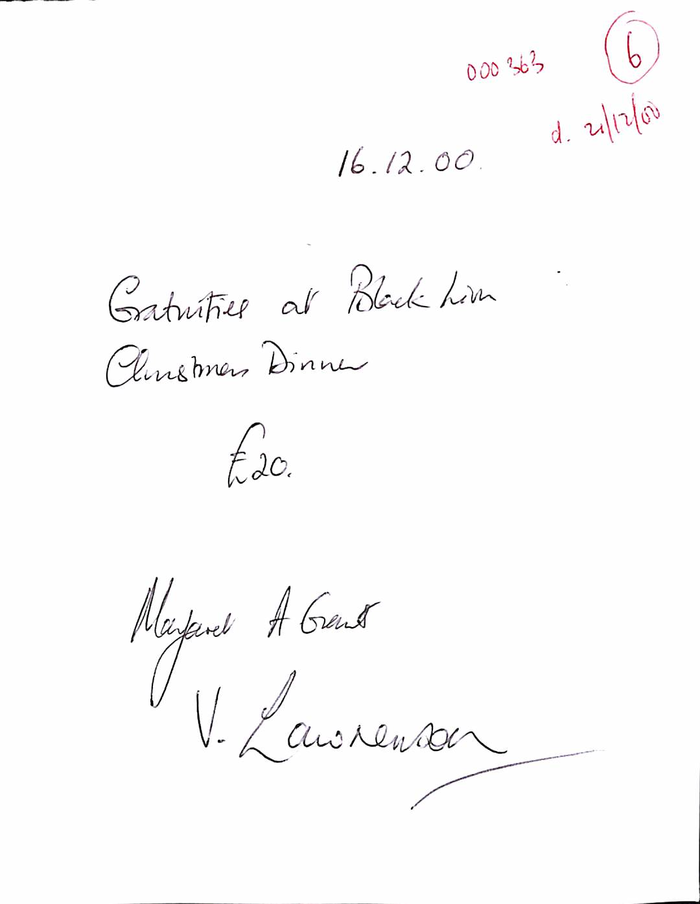 000 363
6
d. 21/12/00
16.12.00.
Gratuities at Black Lion
Christmas Dinner
£20.
Margaret A Grant
V. Lawrenson